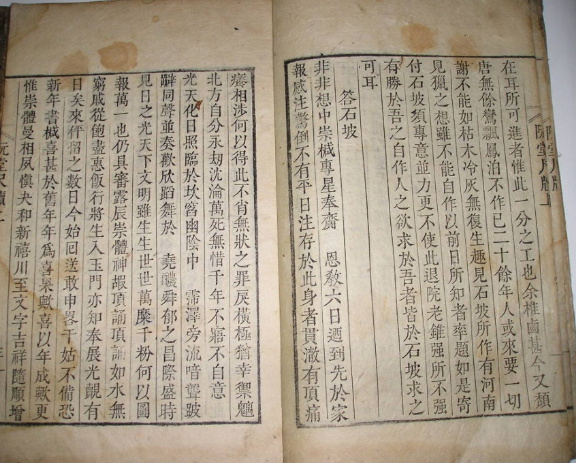 在耳所可進者惟此一分之工也余椎鹵甚今又頹
唐無餘鬱飄鳧泊不作已二十餘年人或來要一切
謝不能如枯木冷灰無復生趣見石坡所作有河南
見獵之想雖不能自作以前日所知者率題如是寄
付石坡須專意並力更不使此退院老錐强所不强
有勝於吾之自作人之欲求於吾者皆於石坡求之
可耳
答石坡
非非想中崇椷專星奉齎 恩敎六日遞到先於家
報感注驚倒不有平日注存於此身者貫澈有頂痛
癢相涉何以得此不肖無狀之罪戾橫極猶幸禦魑
北方自分永劫沈淪萬死無惜千年不寤不自意
光天化日照臨於坎窞幽陰中 霈澤旁流喑聾跛
躃同聲並奏歡欣蹈舞於 堯醲舜郁之昌際盛時
見日之光天下文明雖生生世世萬糜千粉何以圖
報萬一也仍具審露辰崇體神嘏頂誦頂誦如水無
窮戚從鮑盡惠飯行將生入玉門亦知奉展光覿有
日矣來伻留之數日今始回送敢申畧干姑不備恐
新年書椷喜甚於舊年年爲喜果歟喜以年成歟更
惟崇體曼相夙愼夬和新禧川至文字吉祥隨順增